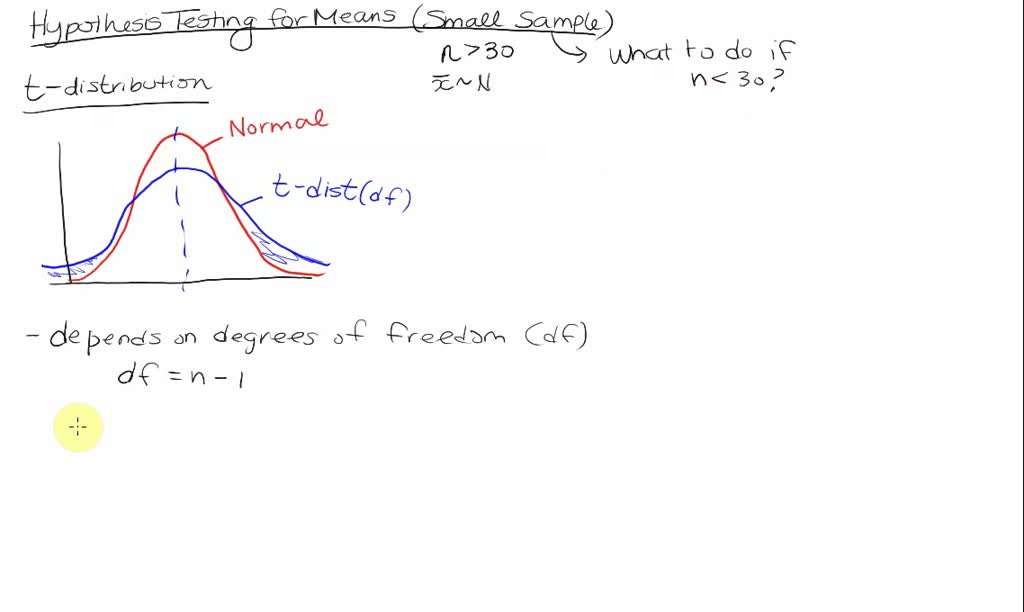 Hypothesis Testing for Means (Small Sample)
n > 30
x̄ ~ N
What to do if
n < 30?
t-distribution
Normal
t-dist(df)
- depends on degrees of freedom (df)
df = n - 1